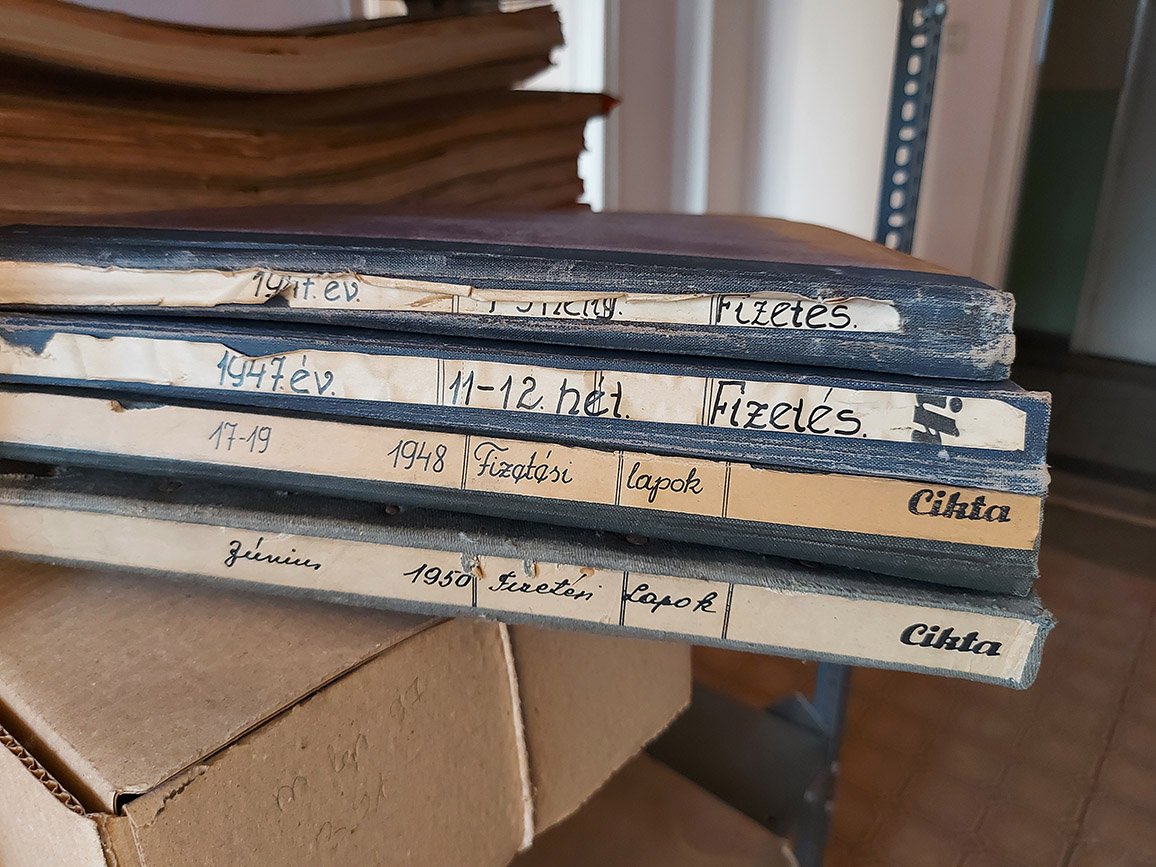 1947. év. Fizetés.
1947. év. 11-12. hét. Fizetés.
17-19 1948 Fizetési lapok Cikta
Június 1950 Fizetési Lapok Cikta